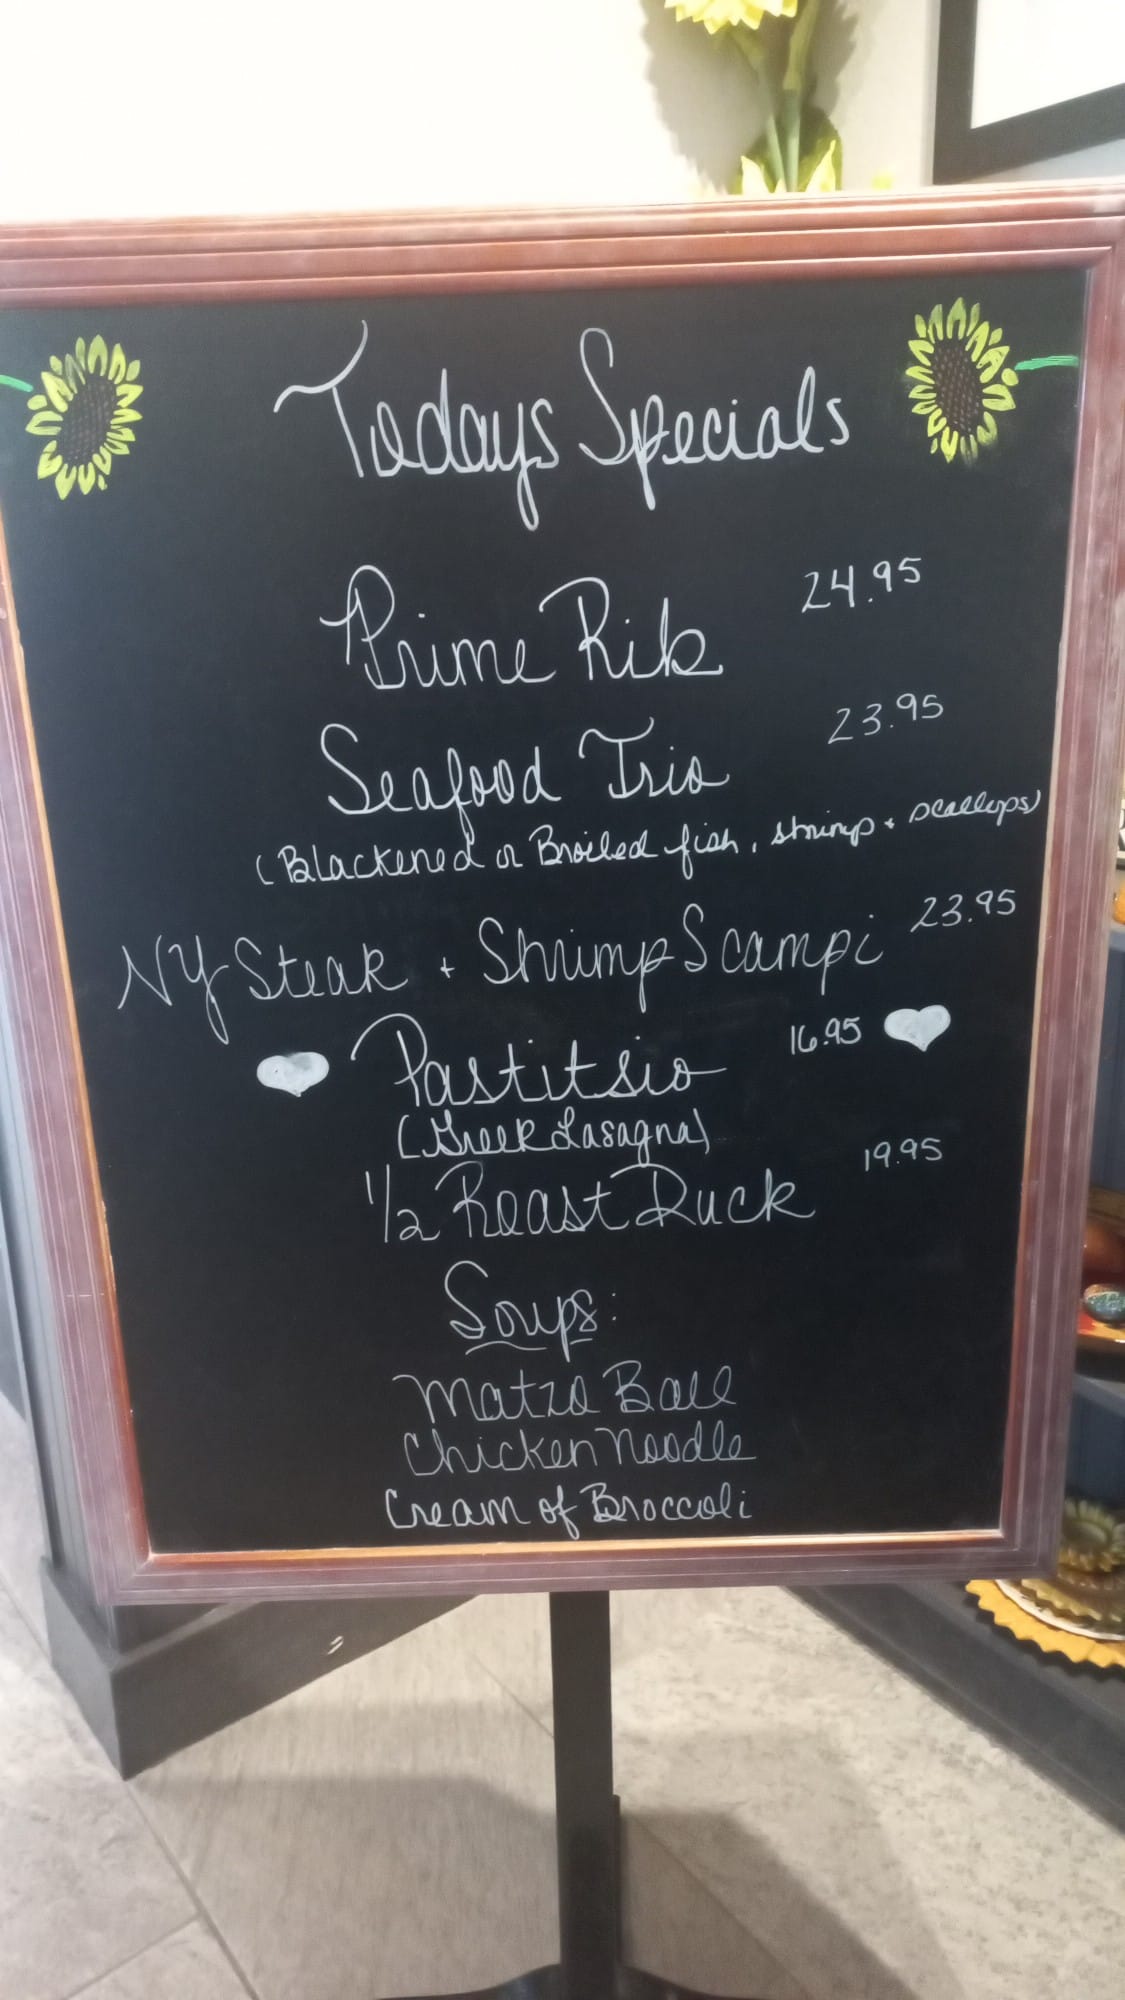 Todays Specials
Prime Rib 24.95
Seafood Trio 23.95
(Blackened or Broiled fish, shrimp + scallops)
NY Steak + Shrimp Scampi 23.95
Pastitsio 16.95
(Greek Lasagna)
1/2 Roast Duck 19.95
Soups:
Matzo Ball
Chicken Noodle
Cream of Broccoli